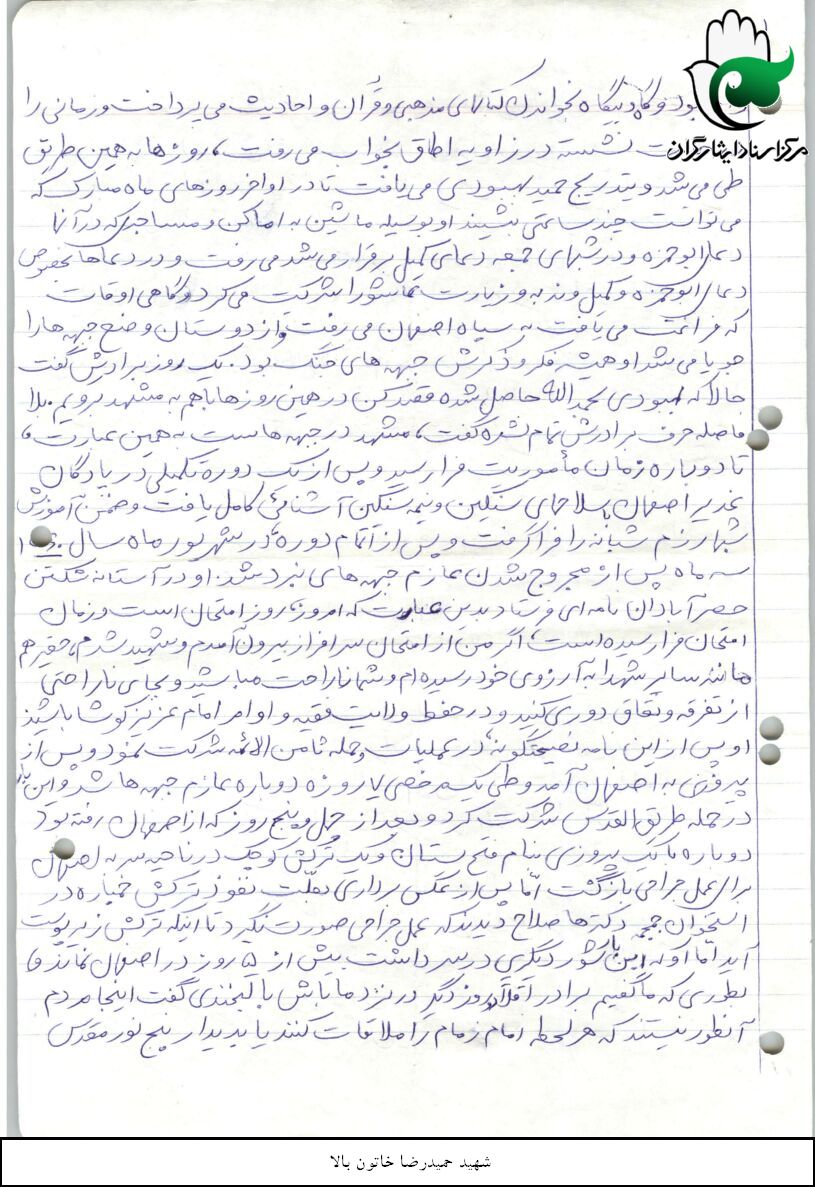 مرکز اسناد ایثارگران
بود و گاه و بیگاه بخواندن کتابهای مذهبی و قرآن و احادیث می پرداخت و زمانی را
نشسته در زاویه اطاق بخواب می رفت، روزها به همین طریق
طی می شد و بتدریج حمید بهبودی می یافت تا در اواخر روزهای ماه مبارک که
می توانست چند ساعتی بنشیند او بوسیله ماشین به اماکن و مساجدی که در آنها
دعای ابوحمزه و در شبهای جمعه دعای کمیل برقرار می شد می رفت و در دعاها بخصوص
دعای ابوحمزه و کمیل و ندبه و زیارت عاشورا شرکت می کرد و گاهی اوقات
که فراغت می یافت به سپاه اصفهان می رفت و از دوستان وضع جبهه ها را
جویا می شد او همیشه فکر و ذکرش جبهه های جنگ بود. یک روز برادرش گفت
حالا که بهبودی بحمدالله حاصل شده قصد کن در همین روزها باهم به مشهد برویم. بلا
فاصله حرف برادرش تمام نشده گفت، مشهد در جبهه هاست به همین عبارت،
تا دوباره زمان مأموریت فرا رسید و پس از یک دوره تکمیلی در پادگان
غدیر اصفهان با سلاحهای سنگین و نیمه سنگین آشنائی کامل یافت و ضمن آموزش
شبها رزم شبانه را فرا گرفت و پس از اتمام دوره، در شهریور ماه سال
سه ماه پس از مجروح شدن عازم جبهه های نبرد شد. او در آستانه شکستن
حصر آبادان نامه ای فرستاد بدین عبارت که امروز، روز امتحان است و زمان
امتحان فرا رسیده است، اگر من از امتحان سرافراز بیرون آمدم و شهید شدم، حقیر هم
مانند سایر شهدا به آرزوی خود رسیده ام و شما ناراحت مباشید و بجای ناراحتی
از تفرقه و نفاق دوری کنید و در حفظ ولایت فقیه و اوامر امام عزیز کوشا باشید
او پس از این نامه نصیحتگونه، در عملیات و حمله ثامن الائمه شرکت نمود و پس از
پیروزی به اصفهان آمد و طی یک مرخصی ۷ روزه دوباره عازم جبهه ها شد و این بار
در حمله طریق القدس شرکت کرد و بعد از چهل و پنج روز که از اصفهان رفته بود
دوباره با یک پیروزی بنام فتح بستان و یک ترکش کوچک در ناحیه سر به اصفهان
برای عمل جراحی بازگشت اما پس از عکس برداری بعلت نفوذ ترکش خمپاره در
استخوان جمجمه دکترها صلاح دیدند که عمل جراحی صورت نگیرد تا اینکه ترکش زیر پوست
آید اما او که این بار شور دیگری در سر داشت بیش از ۵ روز در اصفهان نماند و
بطوری که ما گفتیم برادر اقلاً روز دیگر در نزد ما باش با لبخندی گفت اینجا مردم
آنطور نیستند که هر لحظه امام زمان را ملاقات کنند یا بدیدار پنج نور مقدس
شهید حمیدرضا خاتون بالا